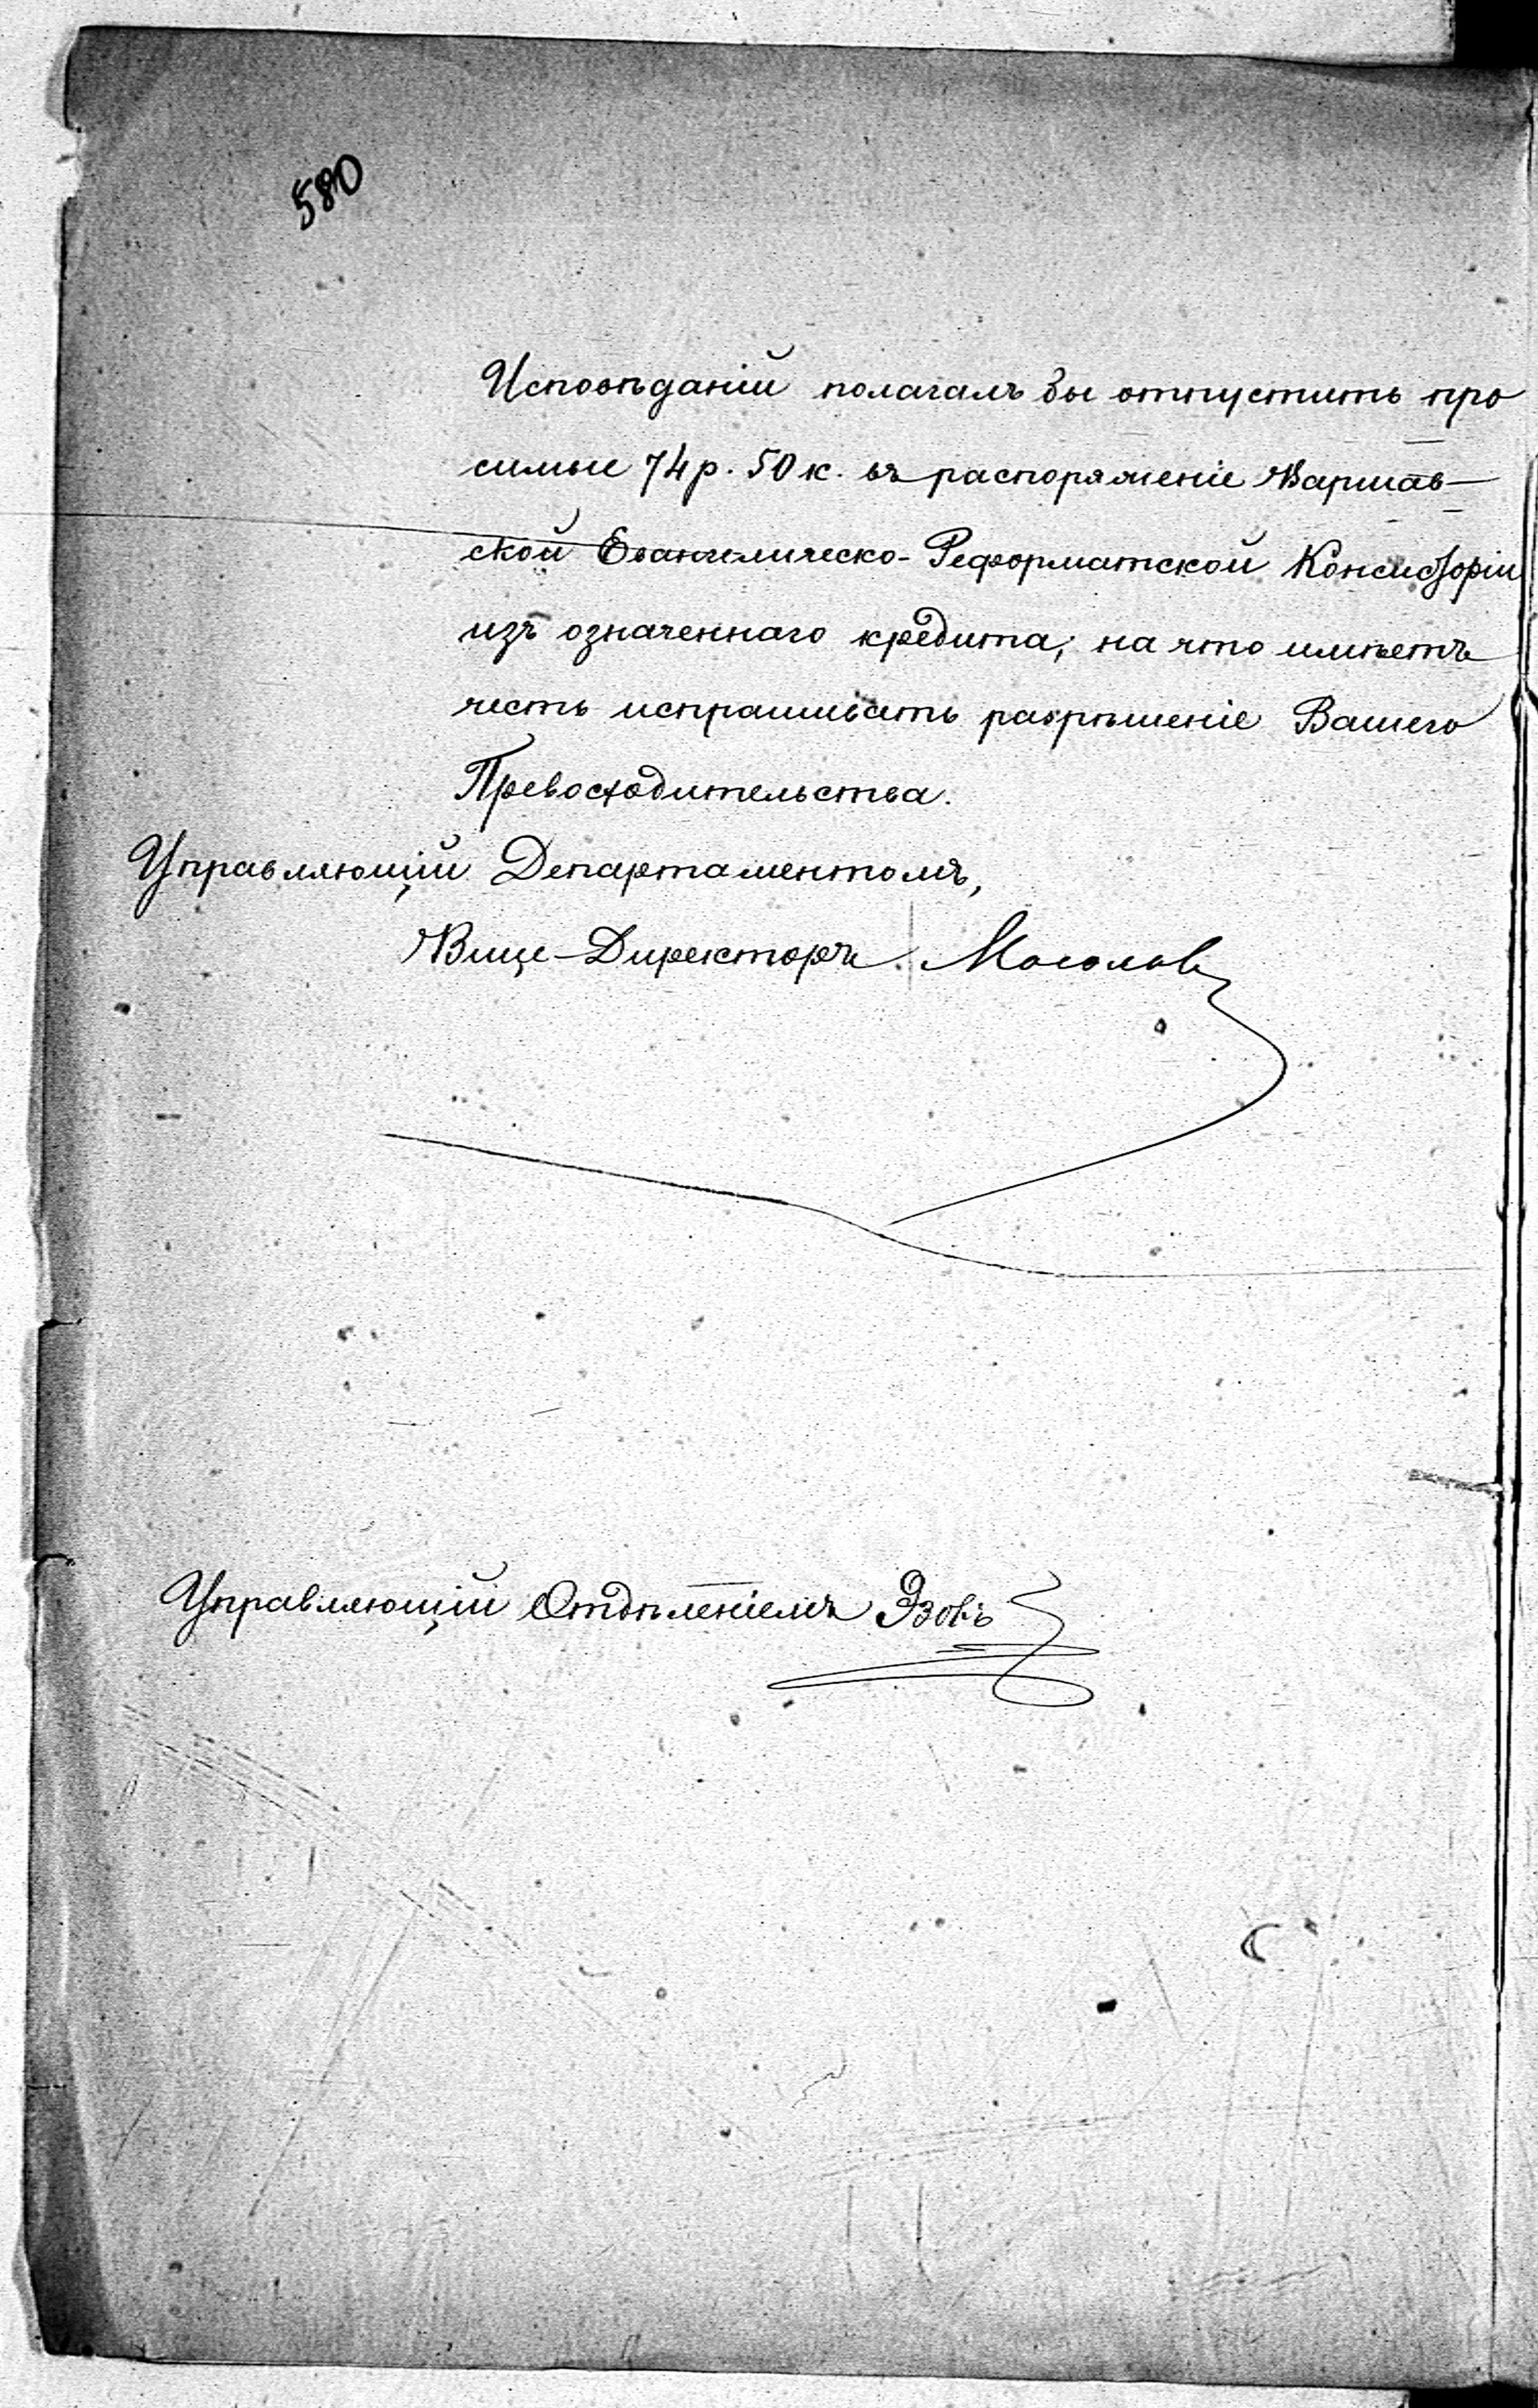 580
Исповѣданій полагалъ бы отпустить про
симые 74 р. 50 к. въ распоряженіе Варшав-
ской Евангелическо-Реформатской Консисторіи
изъ означеннаго кредита; на что имѣетъ
честь испрашивать разрѣшеніе Вашего
Превосходительства.
Управляющій Департаментомъ,
Вице-Директоръ Мосолов
Управляющій Отдѣленіемъ Эзовъ